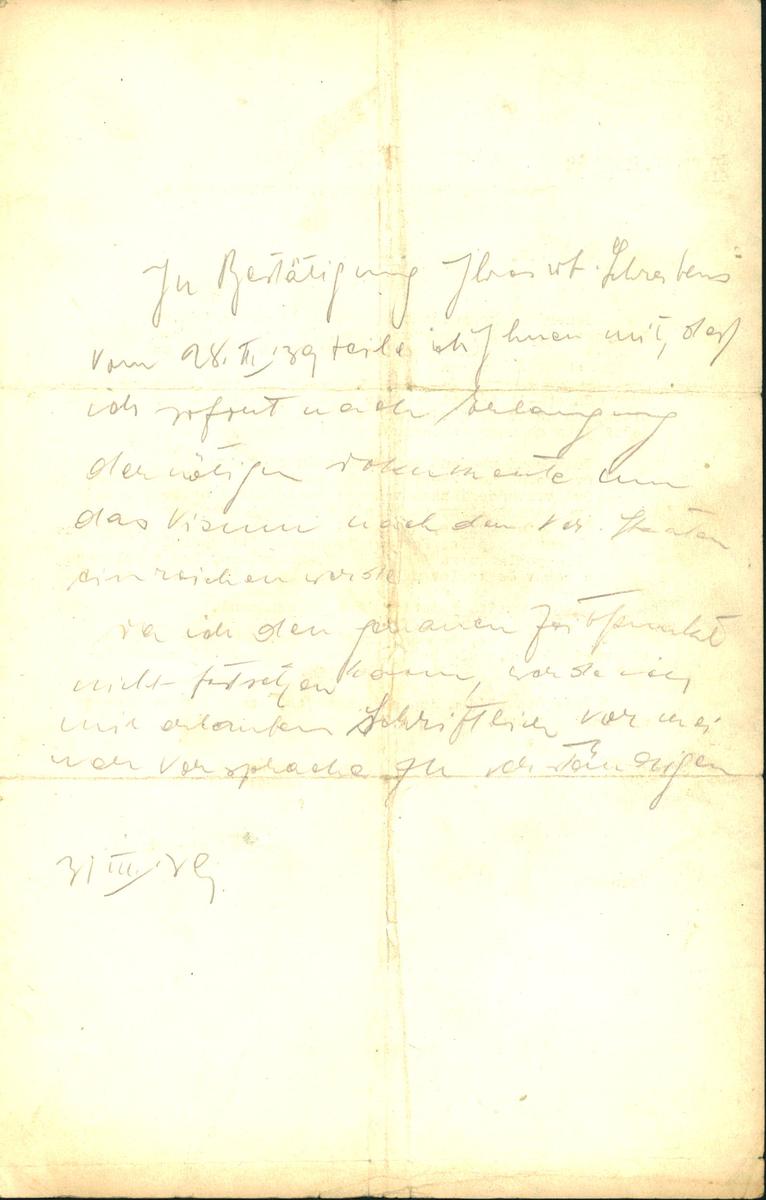 In Bestätigung Ihres wt. Schreibens
vom 28. III. 39 teile ich Ihnen mit, daß
ich sofort nach Erlangung
der nötigen Dokumente um
das Visum nach den Ver. Staaten
einreichen werde
Da ich den genauen Zeitpunkt
nicht festsetzen kann, werde ich
mir erlauben Schriftlich vor mei
ner Vorsprache zu verständigen
31 III. 39